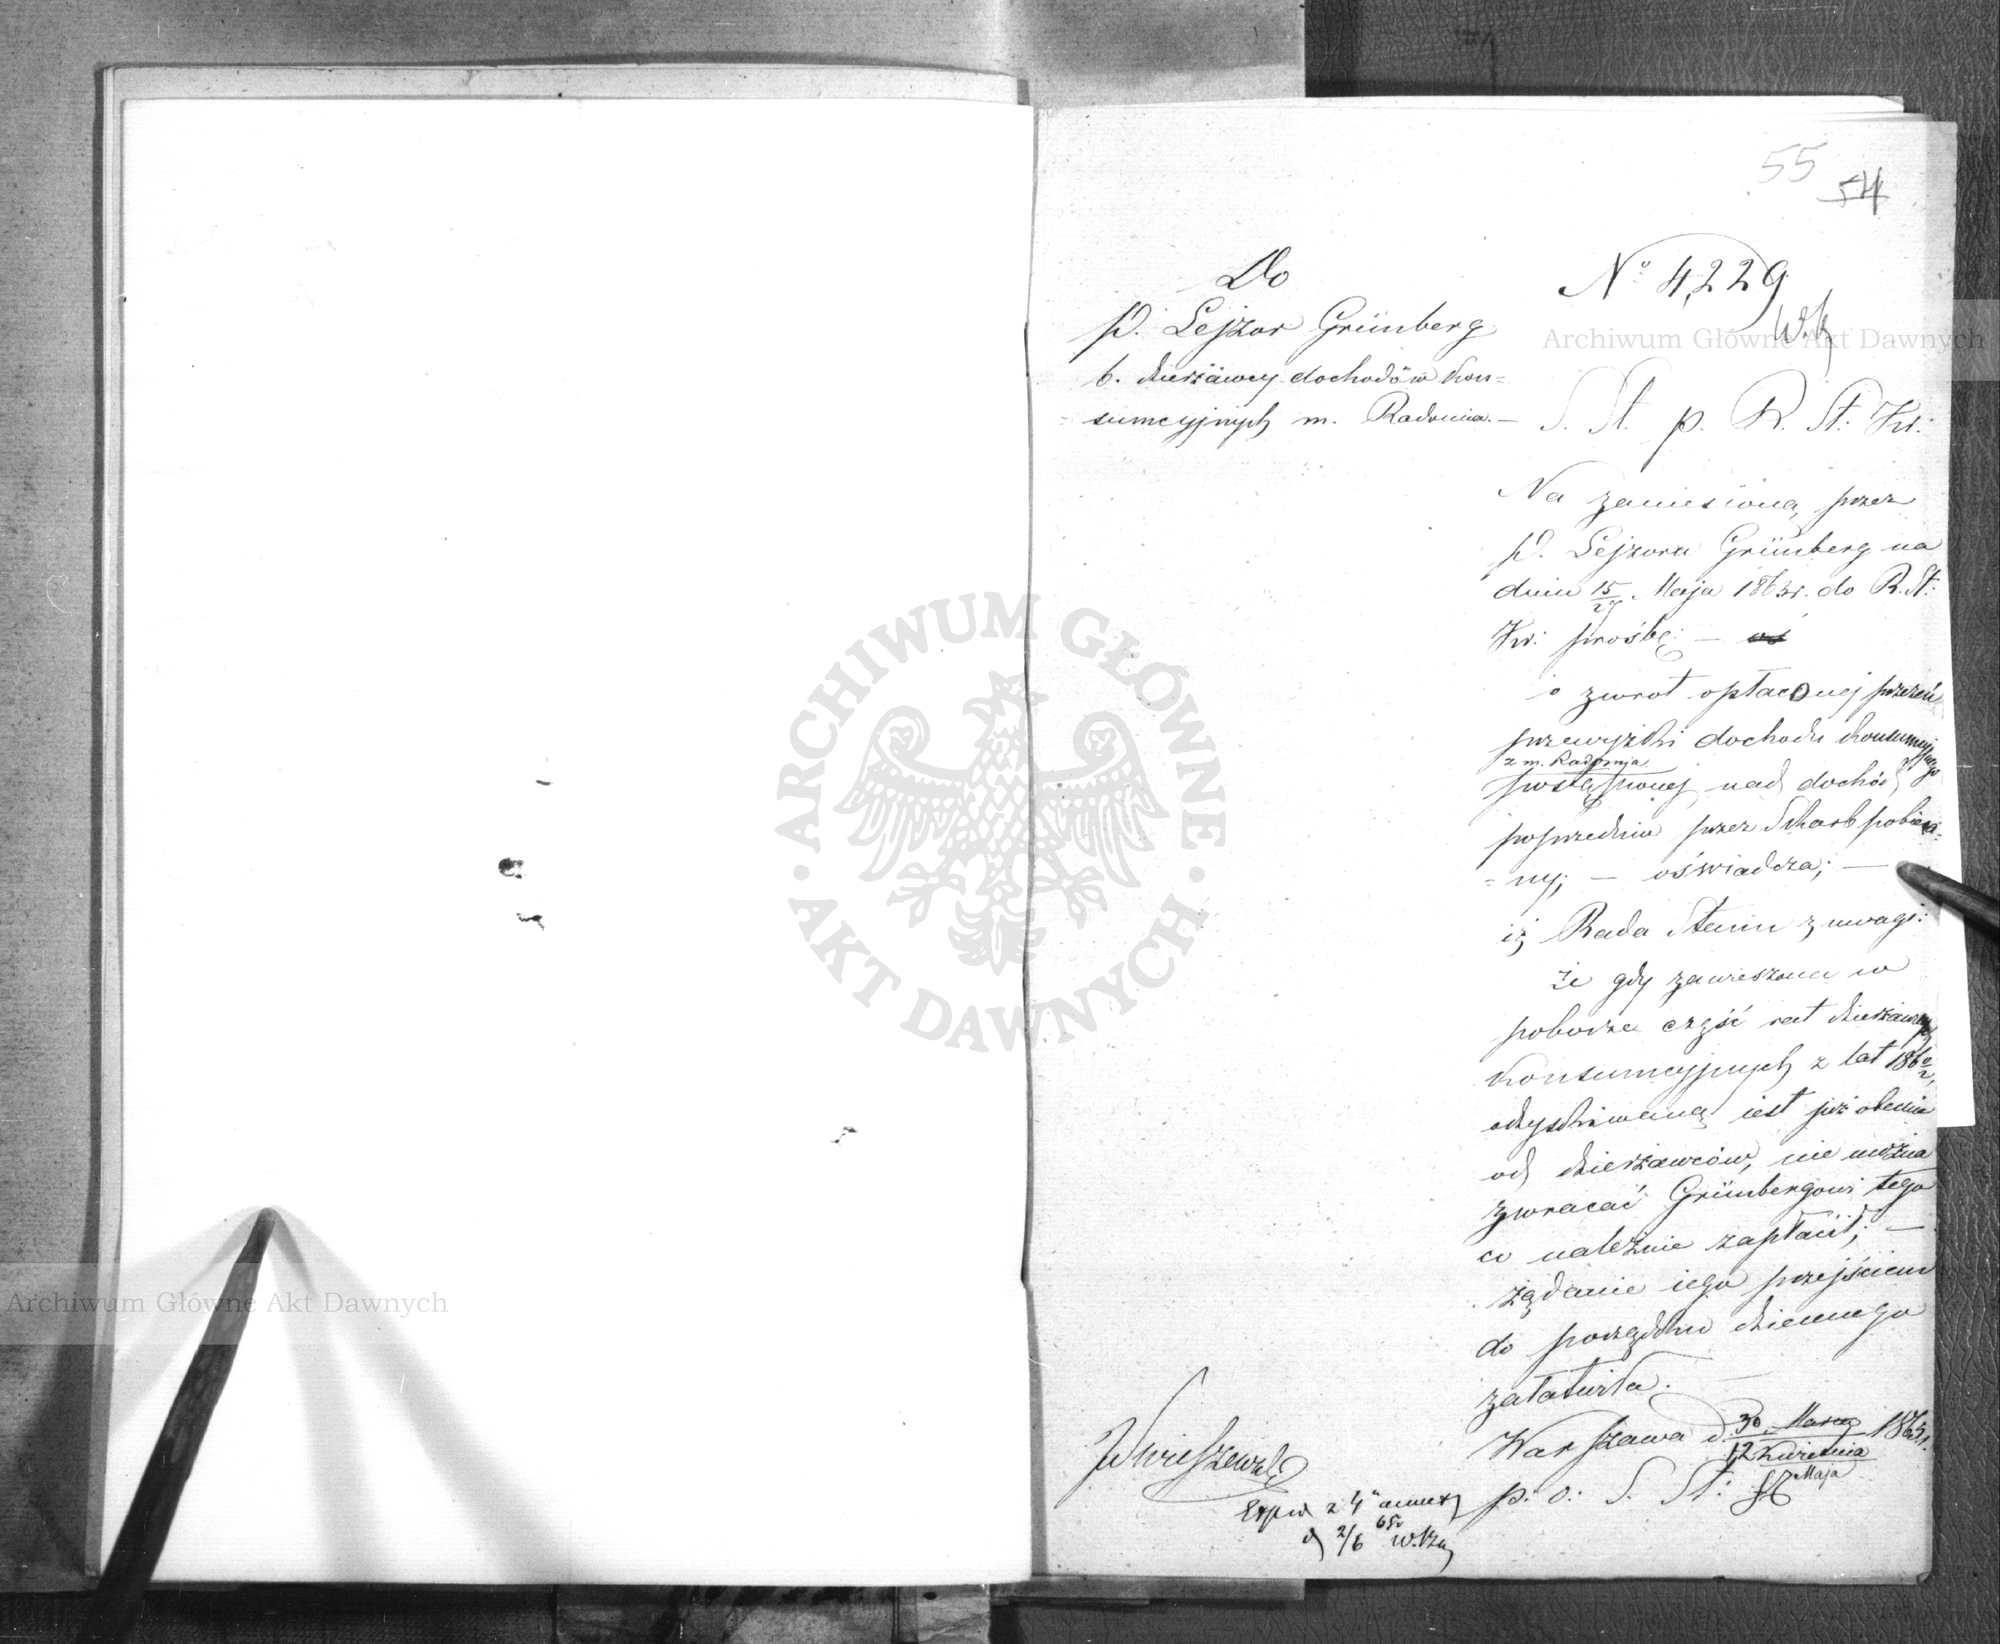 55
54
Do
P. Lejzor Grünberg
b. dzierżawcy dochodów kon=
=sumcyjnych m. Radomia. —
No 4,229
S. St. p. R. St. Kr:
Na zaniesioną przez
P. Lejzora Grünberg na
dniu 15/27 Maja 1863r. do R. St:
Kr: prośbę: —
o zwrot opłaconej przezeń
przewyżki dochodu konsumcyjnego
z m. Radomia
postąpionej nad dochód
poprzednio przez Skarb pobiera=
=ny; — oświadcza; —
iż Rada Stanu z uwagi:
że gdy zawieszona w
poborze część rat dzierżawnych
konsumcyjnych z lat 1860/2,
odzyskiwaną jest już obecnie
od dzierżawców, nie można
zwracać Grünbergowi tego
co należnie zapłacił; —
żądanie iego przejściem
do porządku dziennego
załatwiła. —
Warszawa d. 30 Marca 1865r.
12 Kwietnia
Maja
p. o. S. St:
Expd z 4 annex
d 2/6 65r